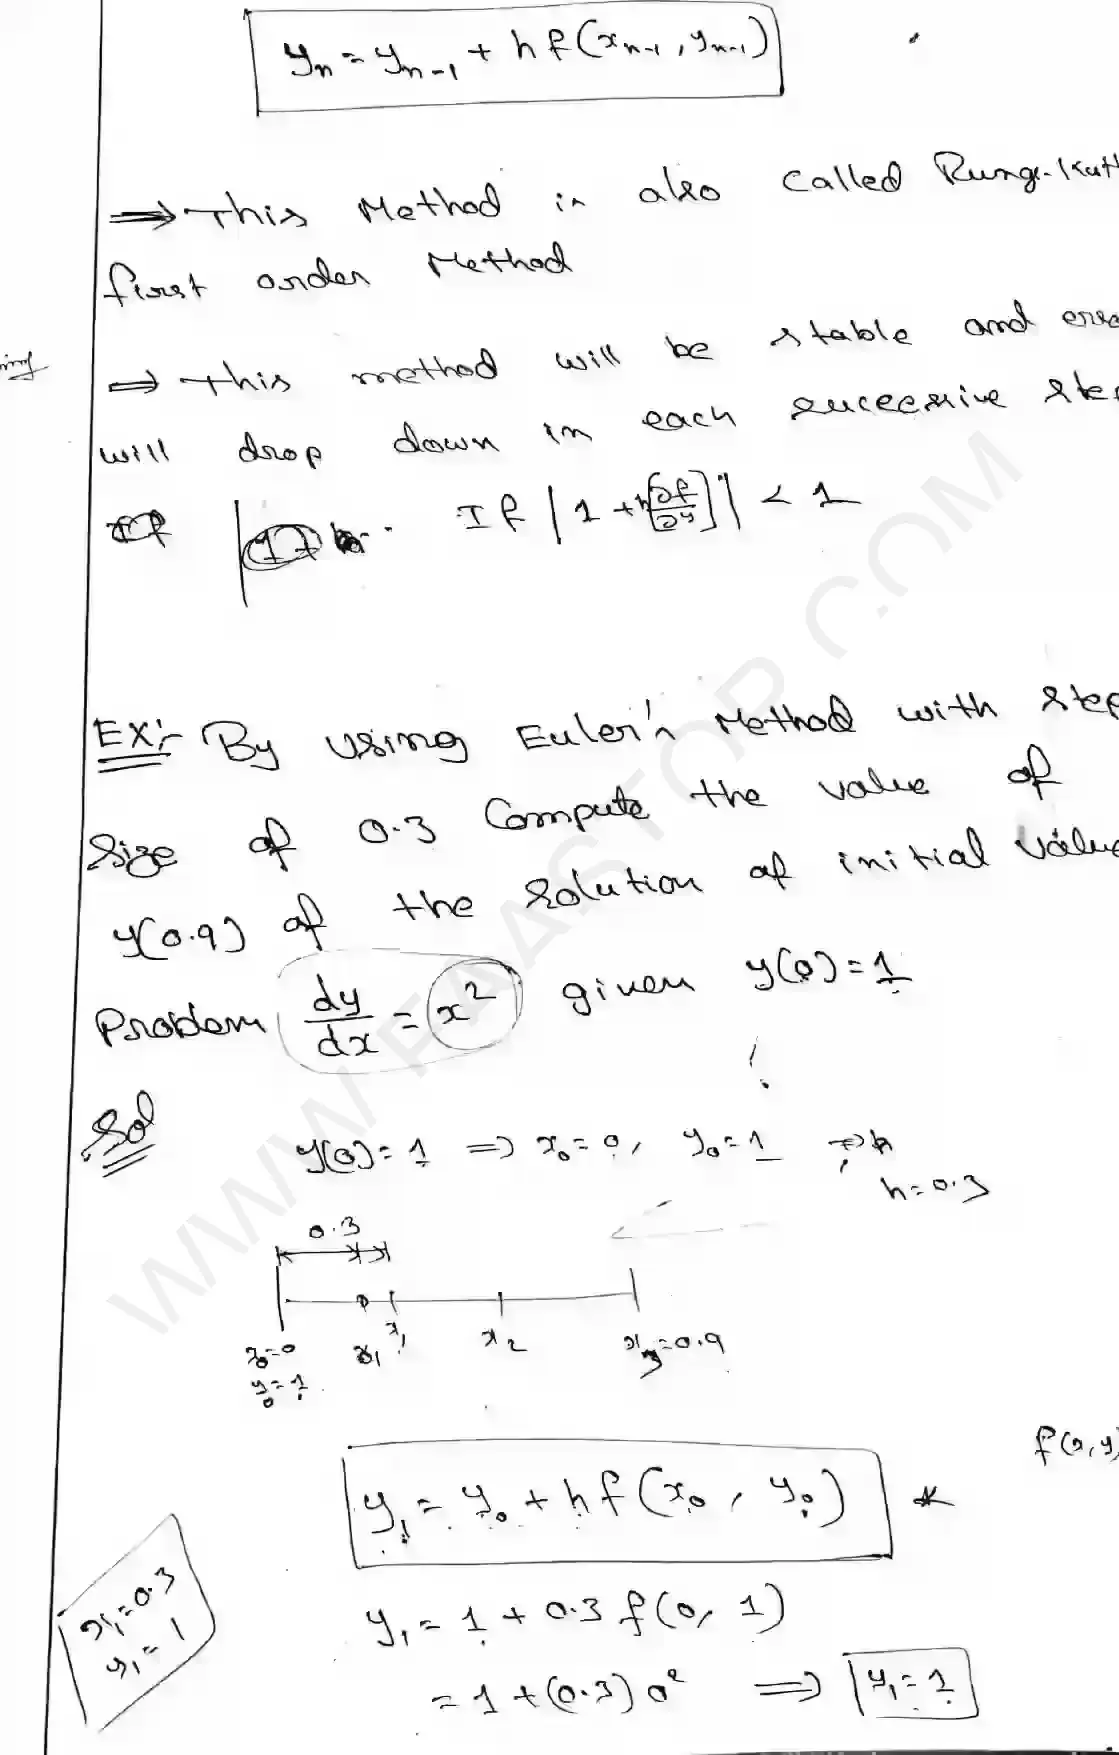 yₙ = yₙ₋₁ + h f(xₙ₋₁, yₙ₋₁)
⟹ This Method is also called Runge-Kutt
first order Method
⟹ This method will be stable and erro
will drop down in each successive ste
If |1 + h[∂f/∂y]| < 1
EX:- By using Euler's Method with step
size of 0.3 Compute the value of
y(0.9) of the solution of initial value
Problem dy/dx = x² given y(0)=1
Sol
y(0)=1 ⟹ x₀=0, y₀=1
h=0.3
0.3
x₀=0 x₁ x₂ x₃=0.9
y₀=1
f(x,y)
y₁ = y₀ + h f(x₀, y₀) *
x₁=0.3
y₁=1
y₁ = 1 + 0.3 f(0, 1)
= 1 + (0.3) 0² ⟹ y₁=1
WWW.FAASTOP.COM